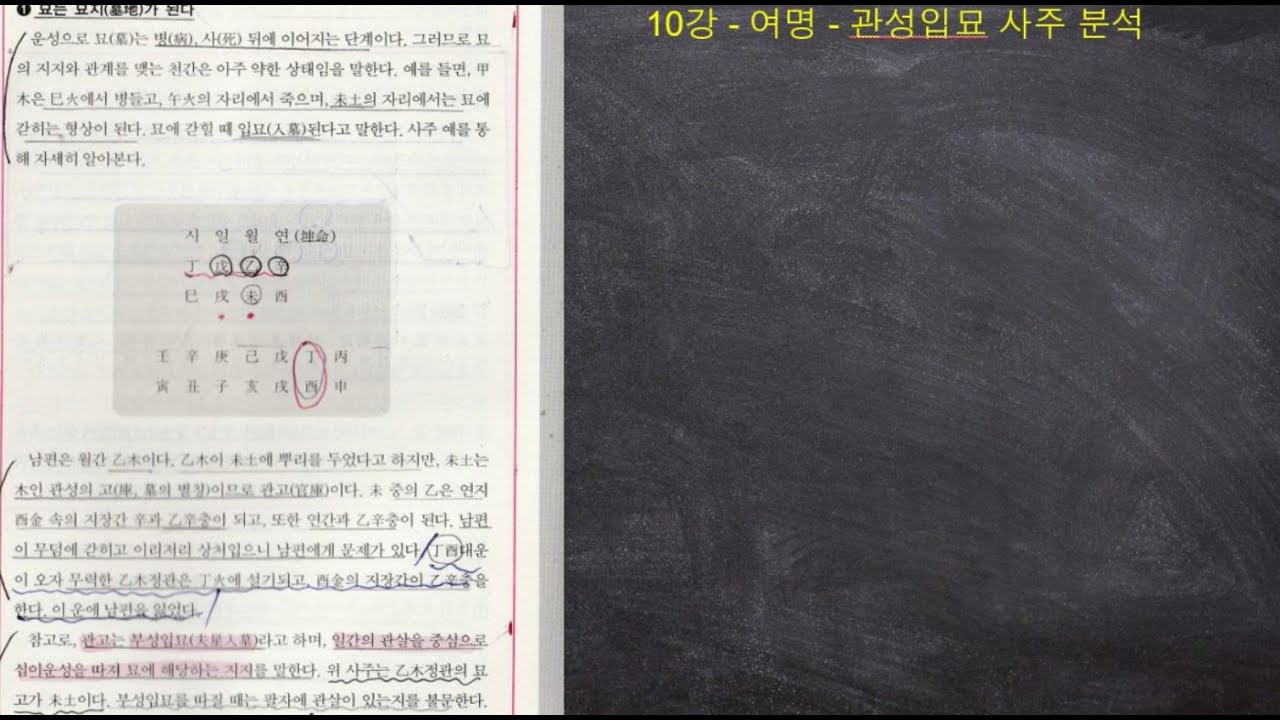 ❶ 묘는 묘지(墓地)가 된다
운성으로 묘(墓)는 병(病), 사(死) 뒤에 이어지는 단계이다. 그러므로 묘
의 지지와 관계를 맺는 천간은 아주 약한 상태임을 말한다. 예를 들면, 甲
木은 巳火에서 병들고, 午火의 자리에서 죽으며, 未土의 자리에서는 묘에
갇히는 형상이 된다. 묘에 갇힐 때 입묘(入墓)된다고 말한다. 사주 예를 통
해 자세히 알아본다.
시 일 월 연 (坤命)
丁 戊 乙 辛
巳 戌 未 酉
壬 辛 庚 己 戊 丁 丙
寅 丑 子 亥 戌 酉 申
남편은 월간 乙木이다. 乙木이 未土에 뿌리를 두었다고 하지만, 未土는
木인 관성의 고(庫, 墓의 별칭)이므로 관고(官庫)이다. 未 중의 乙은 연지
酉金 속의 지장간 辛과 乙辛충이 되고, 또한 연간과 乙辛충이 된다. 남편
이 무덤에 갇히고 이리저리 상처입으니 남편에게 문제가 있다. 丁酉대운
이 오자 무력한 乙木정관은 丁火에 설기되고, 酉金의 지장간이 乙辛충을
한다. 이 운에 남편을 잃었다.
참고로, 관고는 부성입묘(夫星入墓)라고 하며, 일간의 관살을 중심으로
십이운성을 따져 묘에 해당하는 지지를 말한다. 위 사주는 乙木정관의 묘
고가 未土이다. 부성입묘를 따질 때는 팔자에 관살이 있는지를 불문한다.
10강 - 여명 - 관성입묘 사주 분석